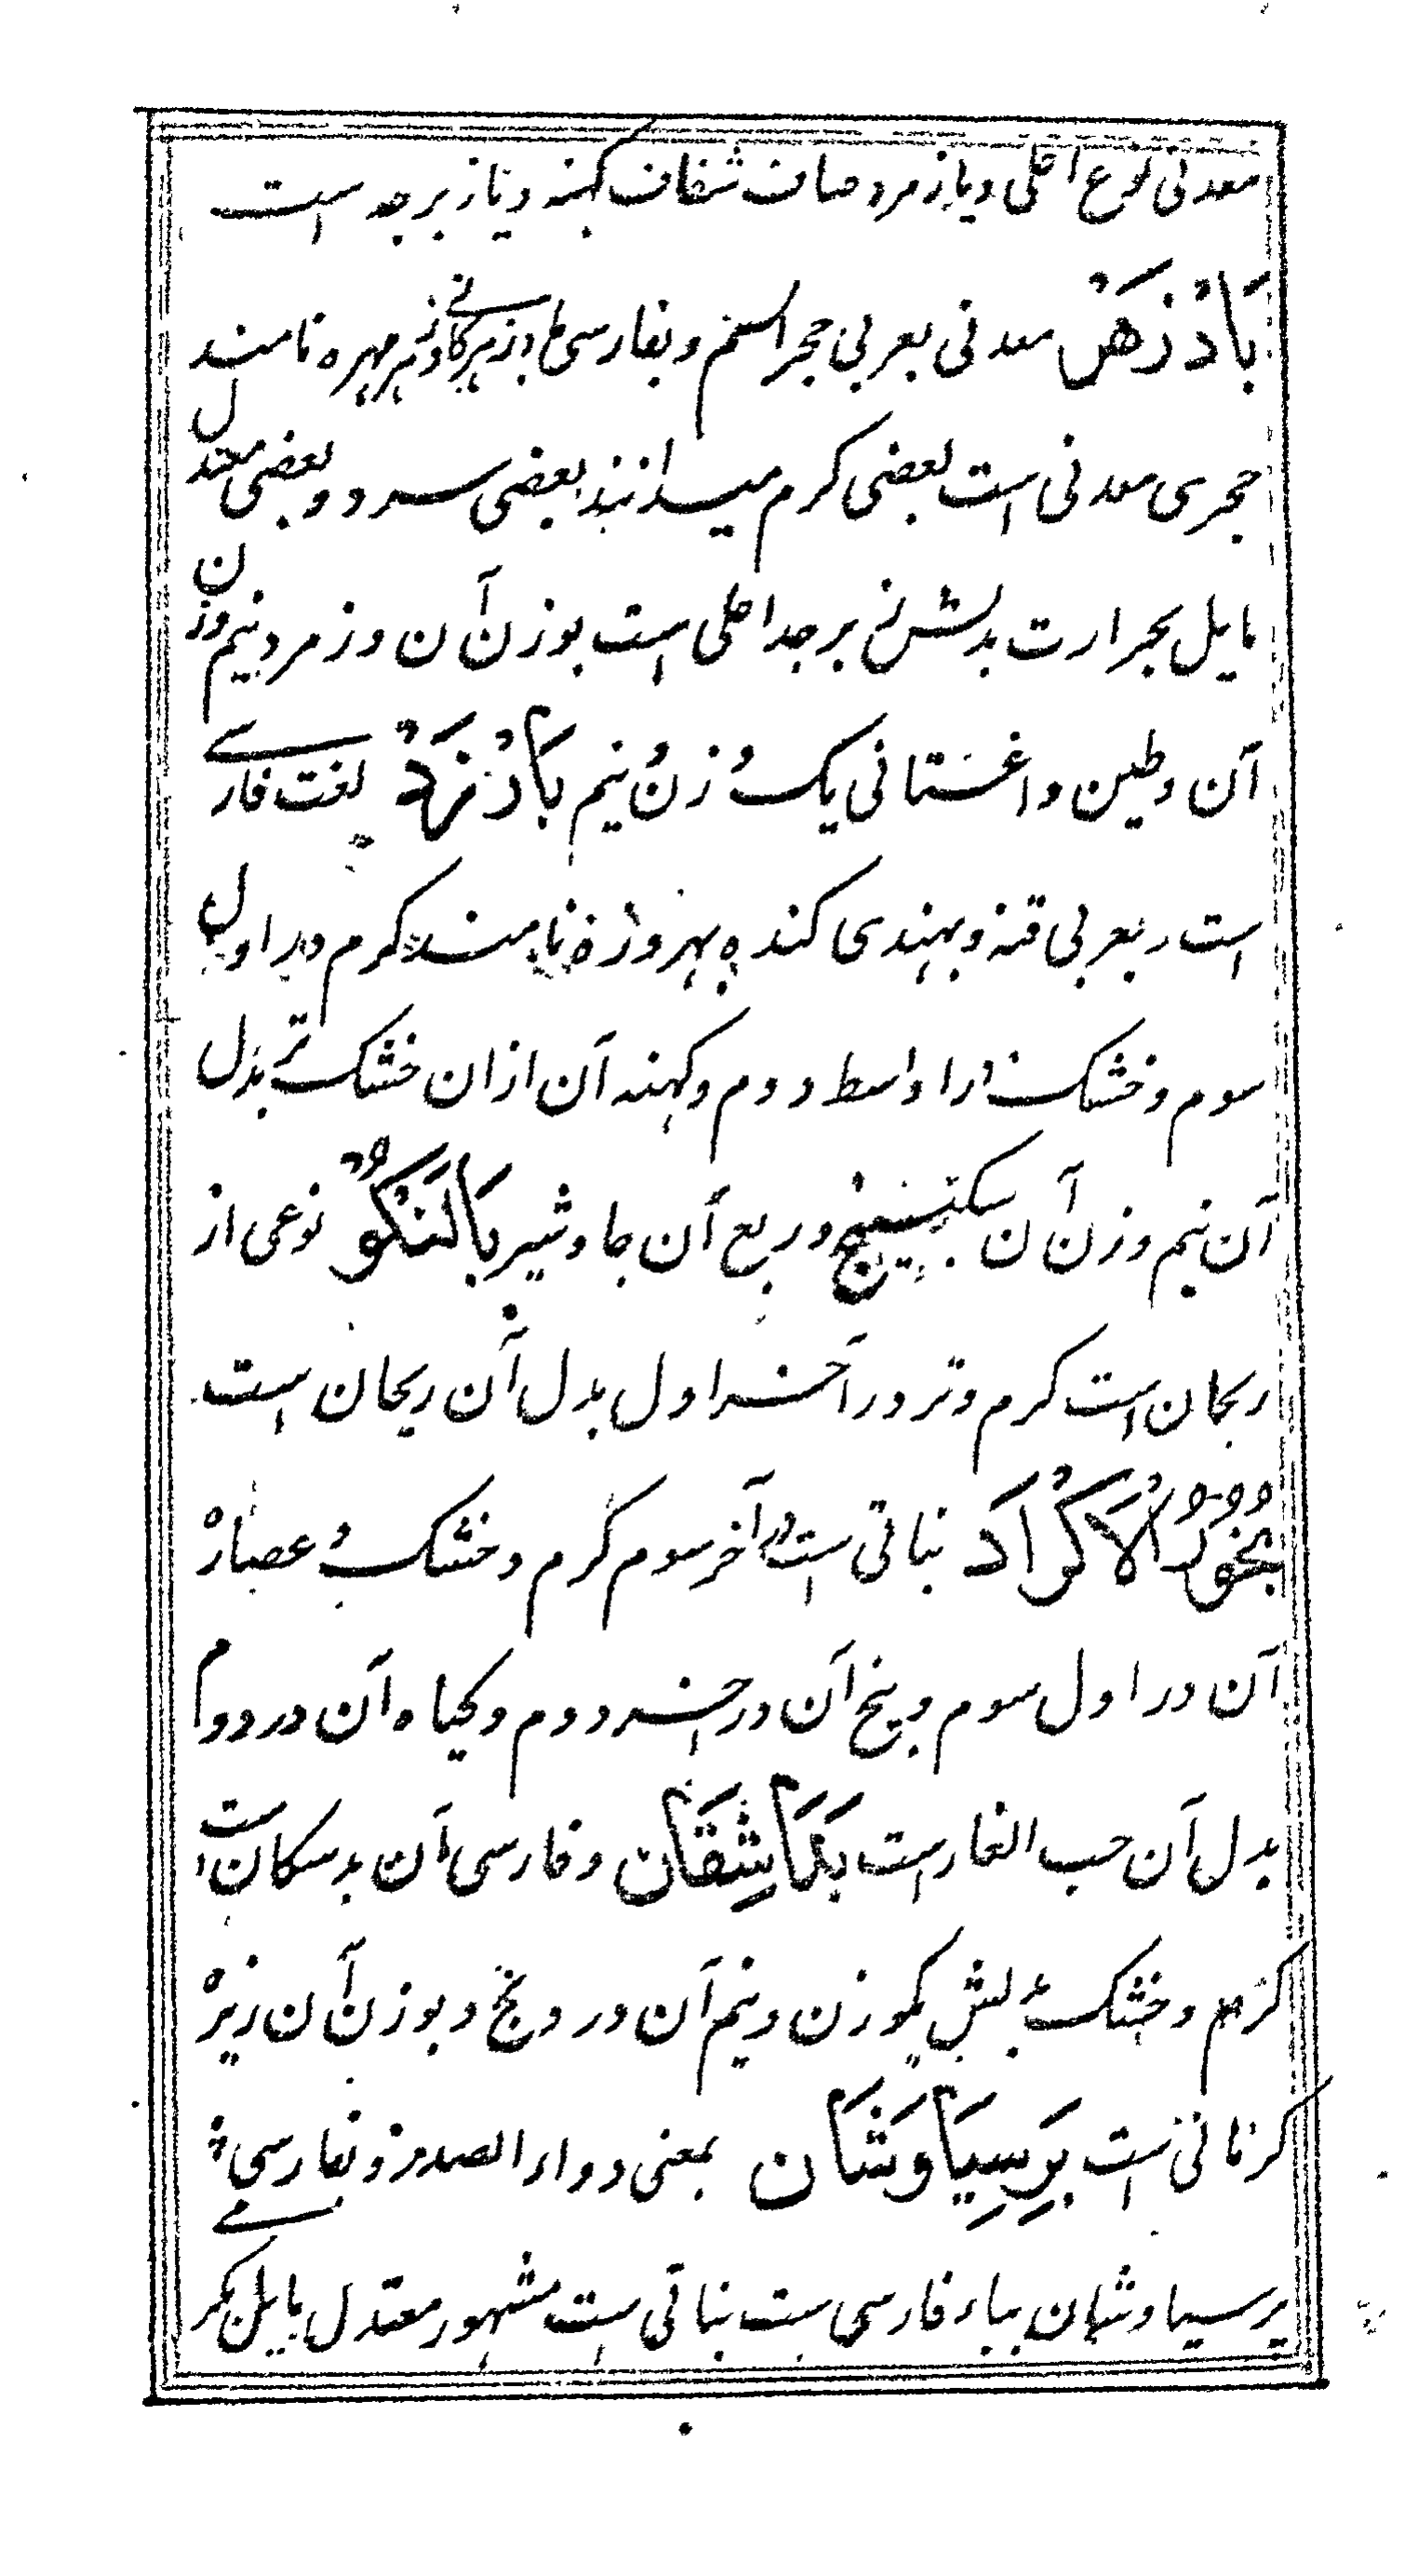 معدنی نوع اعلی و یا زمرد صاف شفاف کهنه و یا زبرجد است
بَادْزَهْر معدنی بعربی حجر السم و بفارسی پادزهر کانی و زهر مهره نامند
حجری معدنی است بعضی کرم میدانند بعضی سرد و بعضی معتدل
مایل بحرارت بدلش زبرجد اعلی است بوزن آن و زمرد نیم وزن
آن و طین داغستانی یک وزن نیم بَادْزَرَدْ لغت فارسی
است بعربی قنه و بهندی کنده بهروزه نامند کرم در اول
سوم و خشک در اواسط دوم و کهنه آن ازان خشک تر بدل
آن نیم وزن آن سکبینج و ربع آن جاوشیر بَالَنْکُو نوعی از
ریحان است کرم و تر در آخر اول بدل آن ریحان است
بُخُوْرُ الْاَکْرَادْ نباتی است در آخر سوم کرم و خشک و عصاره
آن در اول سوم و بیخ آن در آخر دوم و کیاه آن در دوم
بدل آن حب الغار است و فارسی آن بدسکان است
کرم و خشک بدلش یکوزن و نیم آن درونج و بوزن آن زیره
کرمانی است بَرْسِیَاوَشَان بمعنی دواء الصدر و بفارسی
پرسیاوشان بباء فارسی است نباتی است مشهور معتدل مایل بکرمی